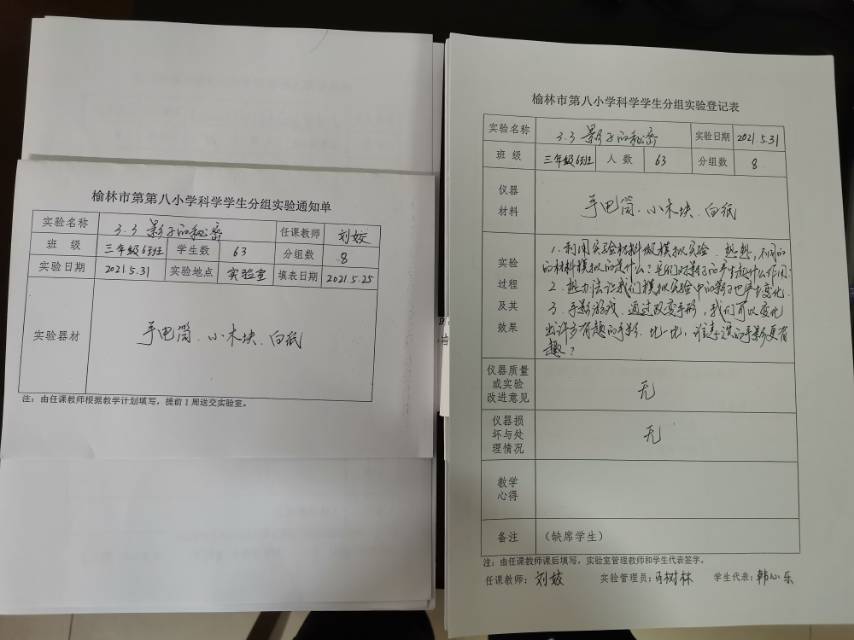 榆林市第第八小学科学学生分组实验通知单
实验名称 3.3 影子的秘密 任课教师 刘姣
班 级 三年级6班 学生数 63 分组数 8
实验日期 2021.5.31 实验地点 实验室 填表日期 2021.5.25
实验器材 手电筒、小木块、白纸
注：由任课教师根据教学计划填写，提前1周送交实验室。
榆林市第八小学科学学生分组实验登记表
实验名称 3.3 影子的秘密 实验日期 2021.5.31
班 级 三年级6班 人 数 63 分组数 8
仪器
材料
手电筒、小木块、白纸
实验
过程
及其
效果
1.利用实验材料做模拟实验,想想,不同的
的材料模拟的是什么?它们对影子的产生起什么作用?
2.想办法让我们模拟实验中的影子也产生变化.
3.手影游戏.通过改变手形,我们可以变化
出许多有趣的手影.比一比,谁表演的手影更有
趣?
仪器质量
或实验
改进意见
无
仪器损
坏与处
理情况
无
教学
心得
备注 （缺席学生）
注：由任课教师课后填写，实验室管理教师和学生代表签字。
任课教师：刘姣 实验管理员：树林 学生代表：韩心乐